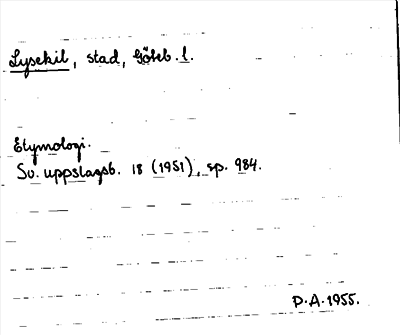 Lysekil, stad, Göteb. l.
Etymologi.
Sv. uppslagsb. 18 (1951), sp. 984.
P.A. 1955.